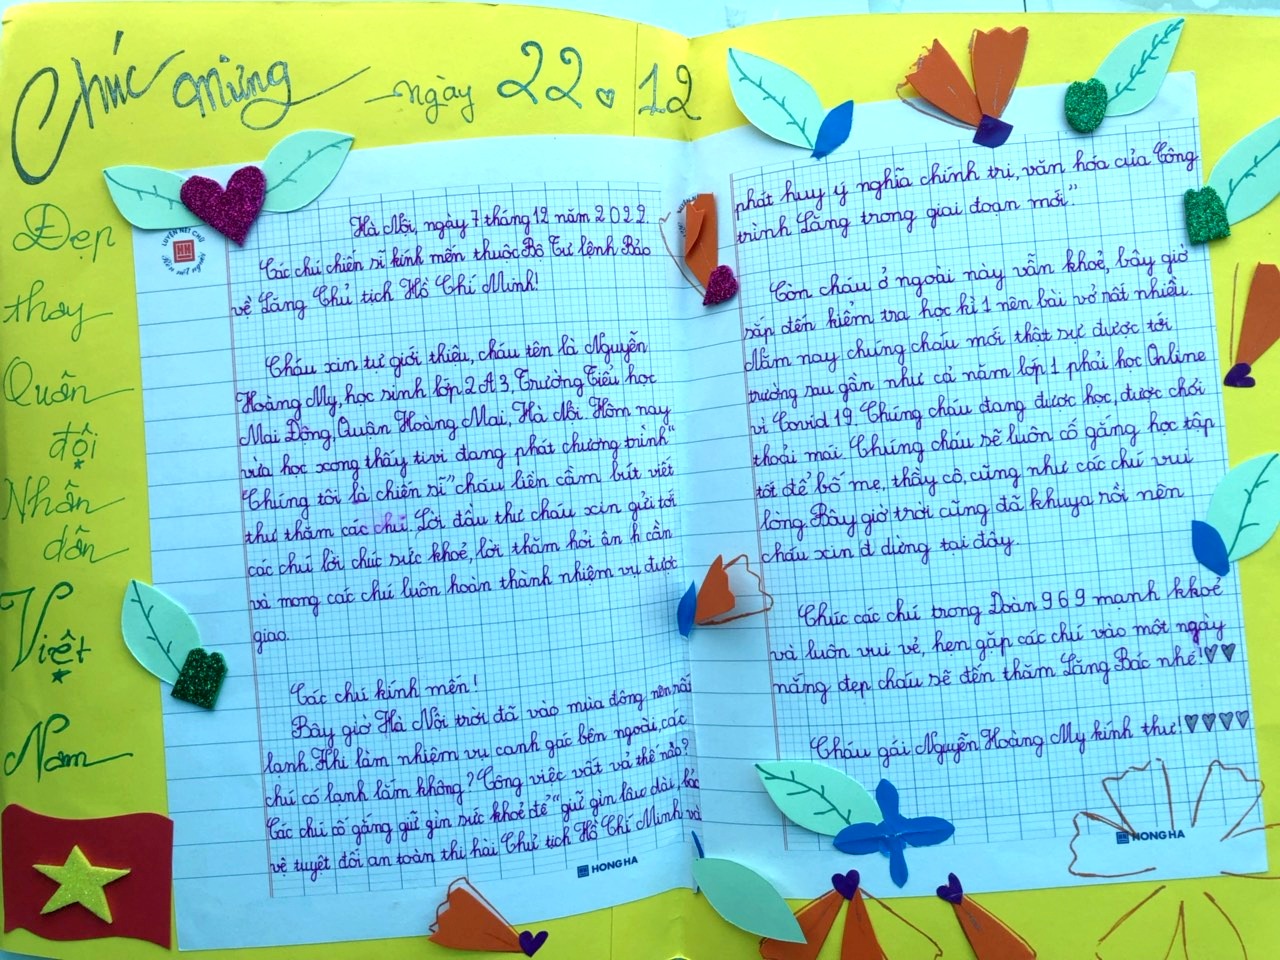 Chúc mừng ngày 22 12
Đẹp
thay
Quân
đội
Nhân
dân
Việt
Nam
Hà Nội, ngày 7 tháng 12 năm 2022.
Các chú chiến sĩ kính mến thuộc Bộ Tư lệnh Bảo
vệ Lăng Chủ tịch Hồ Chí Minh!
Cháu xin tự giới thiệu, cháu tên là Nguyễn
Hoàng My, học sinh lớp 2A3, Trường Tiểu học
Mai Động, Quận Hoàng Mai, Hà Nội. Hôm nay
vừa học xong thấy tivi đang phát chương trình "
Chúng tôi là chiến sĩ" cháu liền cầm bút viết
thư thăm các chú. Lời đầu thư cháu xin gửi tới
các chú lời chúc sức khoẻ, lời thăm hỏi ân h cần
và mong các chú luôn hoàn thành nhiệm vụ được
giao.
Các chú kính mến!
Bây giờ Hà Nội trời đã vào mùa đông nên rất
lạnh. Khi làm nhiệm vụ canh gác bên ngoài, các
chú có lạnh lắm không? Công việc vất vả thế nào?
Các chú cố gắng giữ gìn sức khoẻ để "giữ gìn lâu dài, bảo
vệ tuyệt đối an toàn thi hài Chủ tịch Hồ Chí Minh và
HONG HA
phát huy ý nghĩa chính trị, văn hóa của Công
trình Lăng trong giai đoạn mới"
Còn cháu ở ngoài này vẫn khoẻ, bây giờ
sắp đến kiểm tra học kì 1 nên bài vở rất nhiều.
Năm nay chúng cháu mới thật sự được tới
trường sau gần như cả năm lớp 1 phải học Online
vì Covid 19. Chúng cháu đang được học, được chơi
thoải mái. Chúng cháu sẽ luôn cố gắng học tập
tốt để bố mẹ, thầy cô, cũng như các chú vui
lòng. Bây giờ trời cũng đã khuya rồi nên
cháu xin d dừng tại đây.
Chúc các chú trong Đoàn 969 mạnh kkoẻ
và luôn vui vẻ, hẹn gặp các chú vào một ngày
nắng đẹp cháu sẽ đến thăm Lăng Bác nhé!
Cháu gái Nguyễn Hoàng My kính thư!
HONG HA